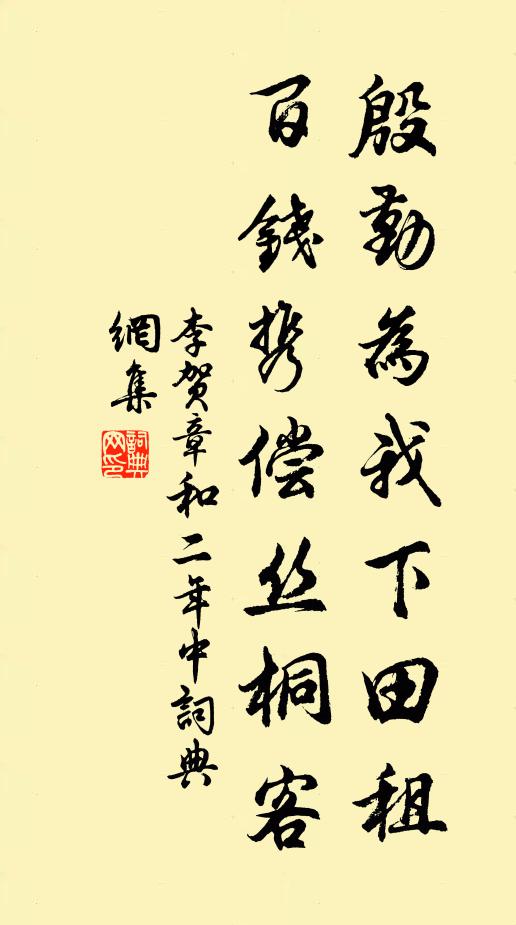 殷勤為我下田租
百錢携偿丝桐客
李贺章和二年中詞典
網集
詞典网印